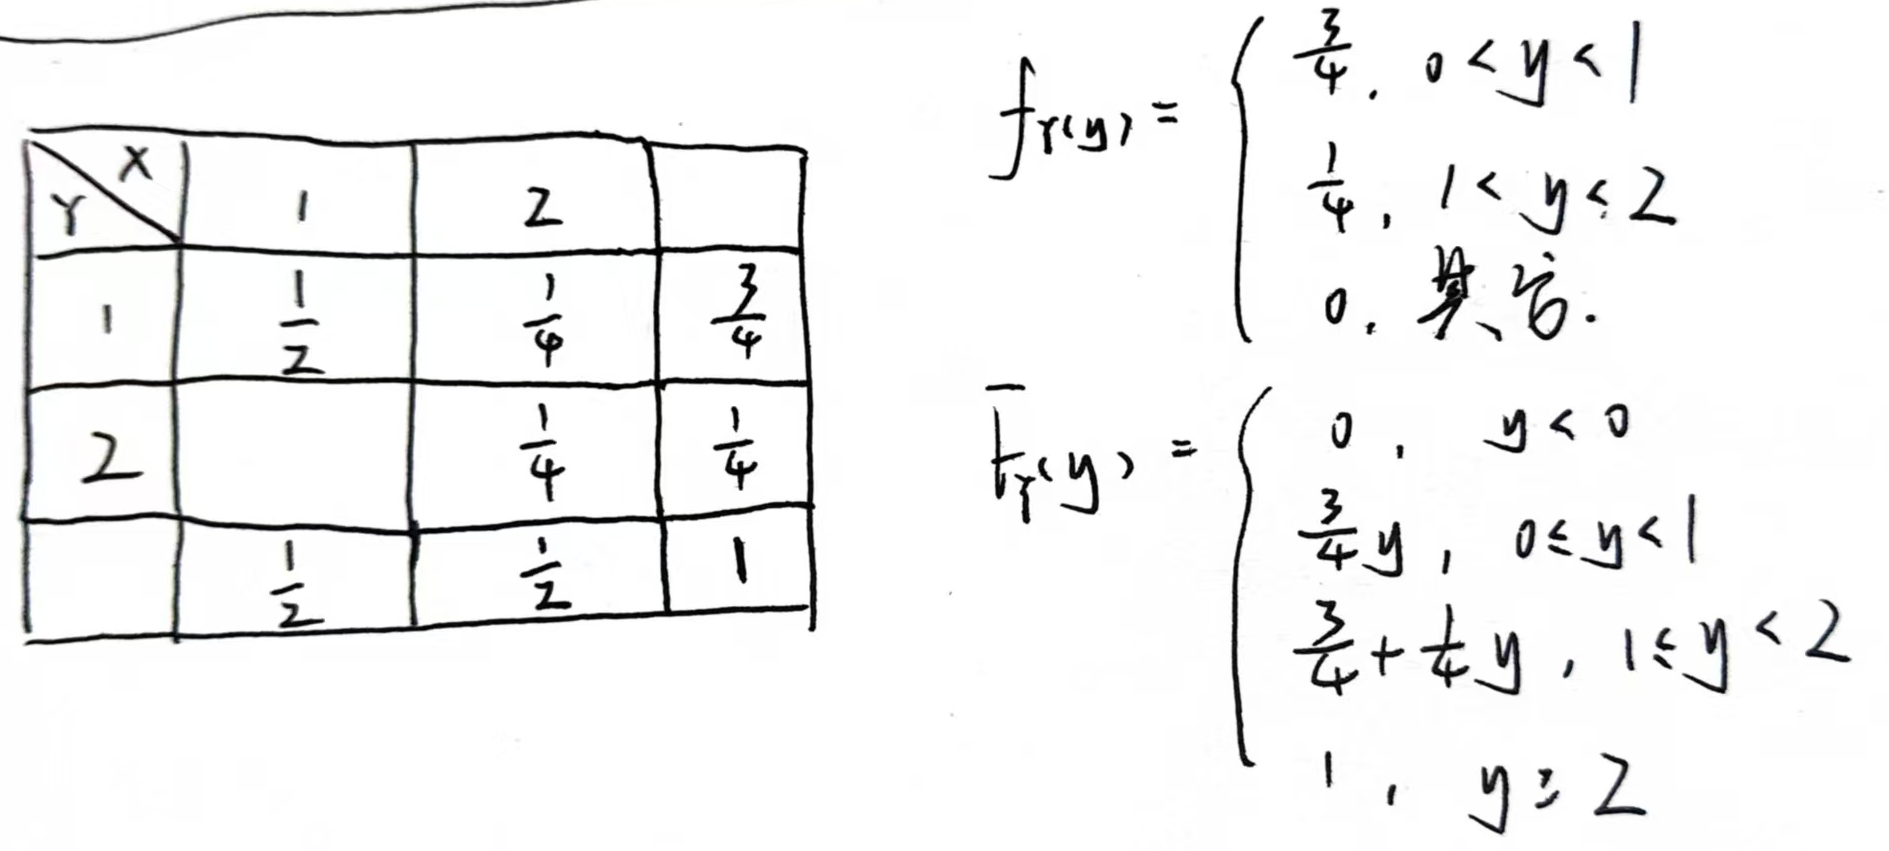 Y\X 1 2
1 1/2 1/4 3/4
2 1/4 1/4
1/2 1/2 1
f_Y(y) = { 3/4, 0 < y < 1
1/4, 1 < y < 2
0, 其它.
F_Y(y) = { 0, y < 0
3/4 y, 0 ≤ y < 1
3/4 + 1/4 y, 1 ≤ y < 2
1, y ≥ 2